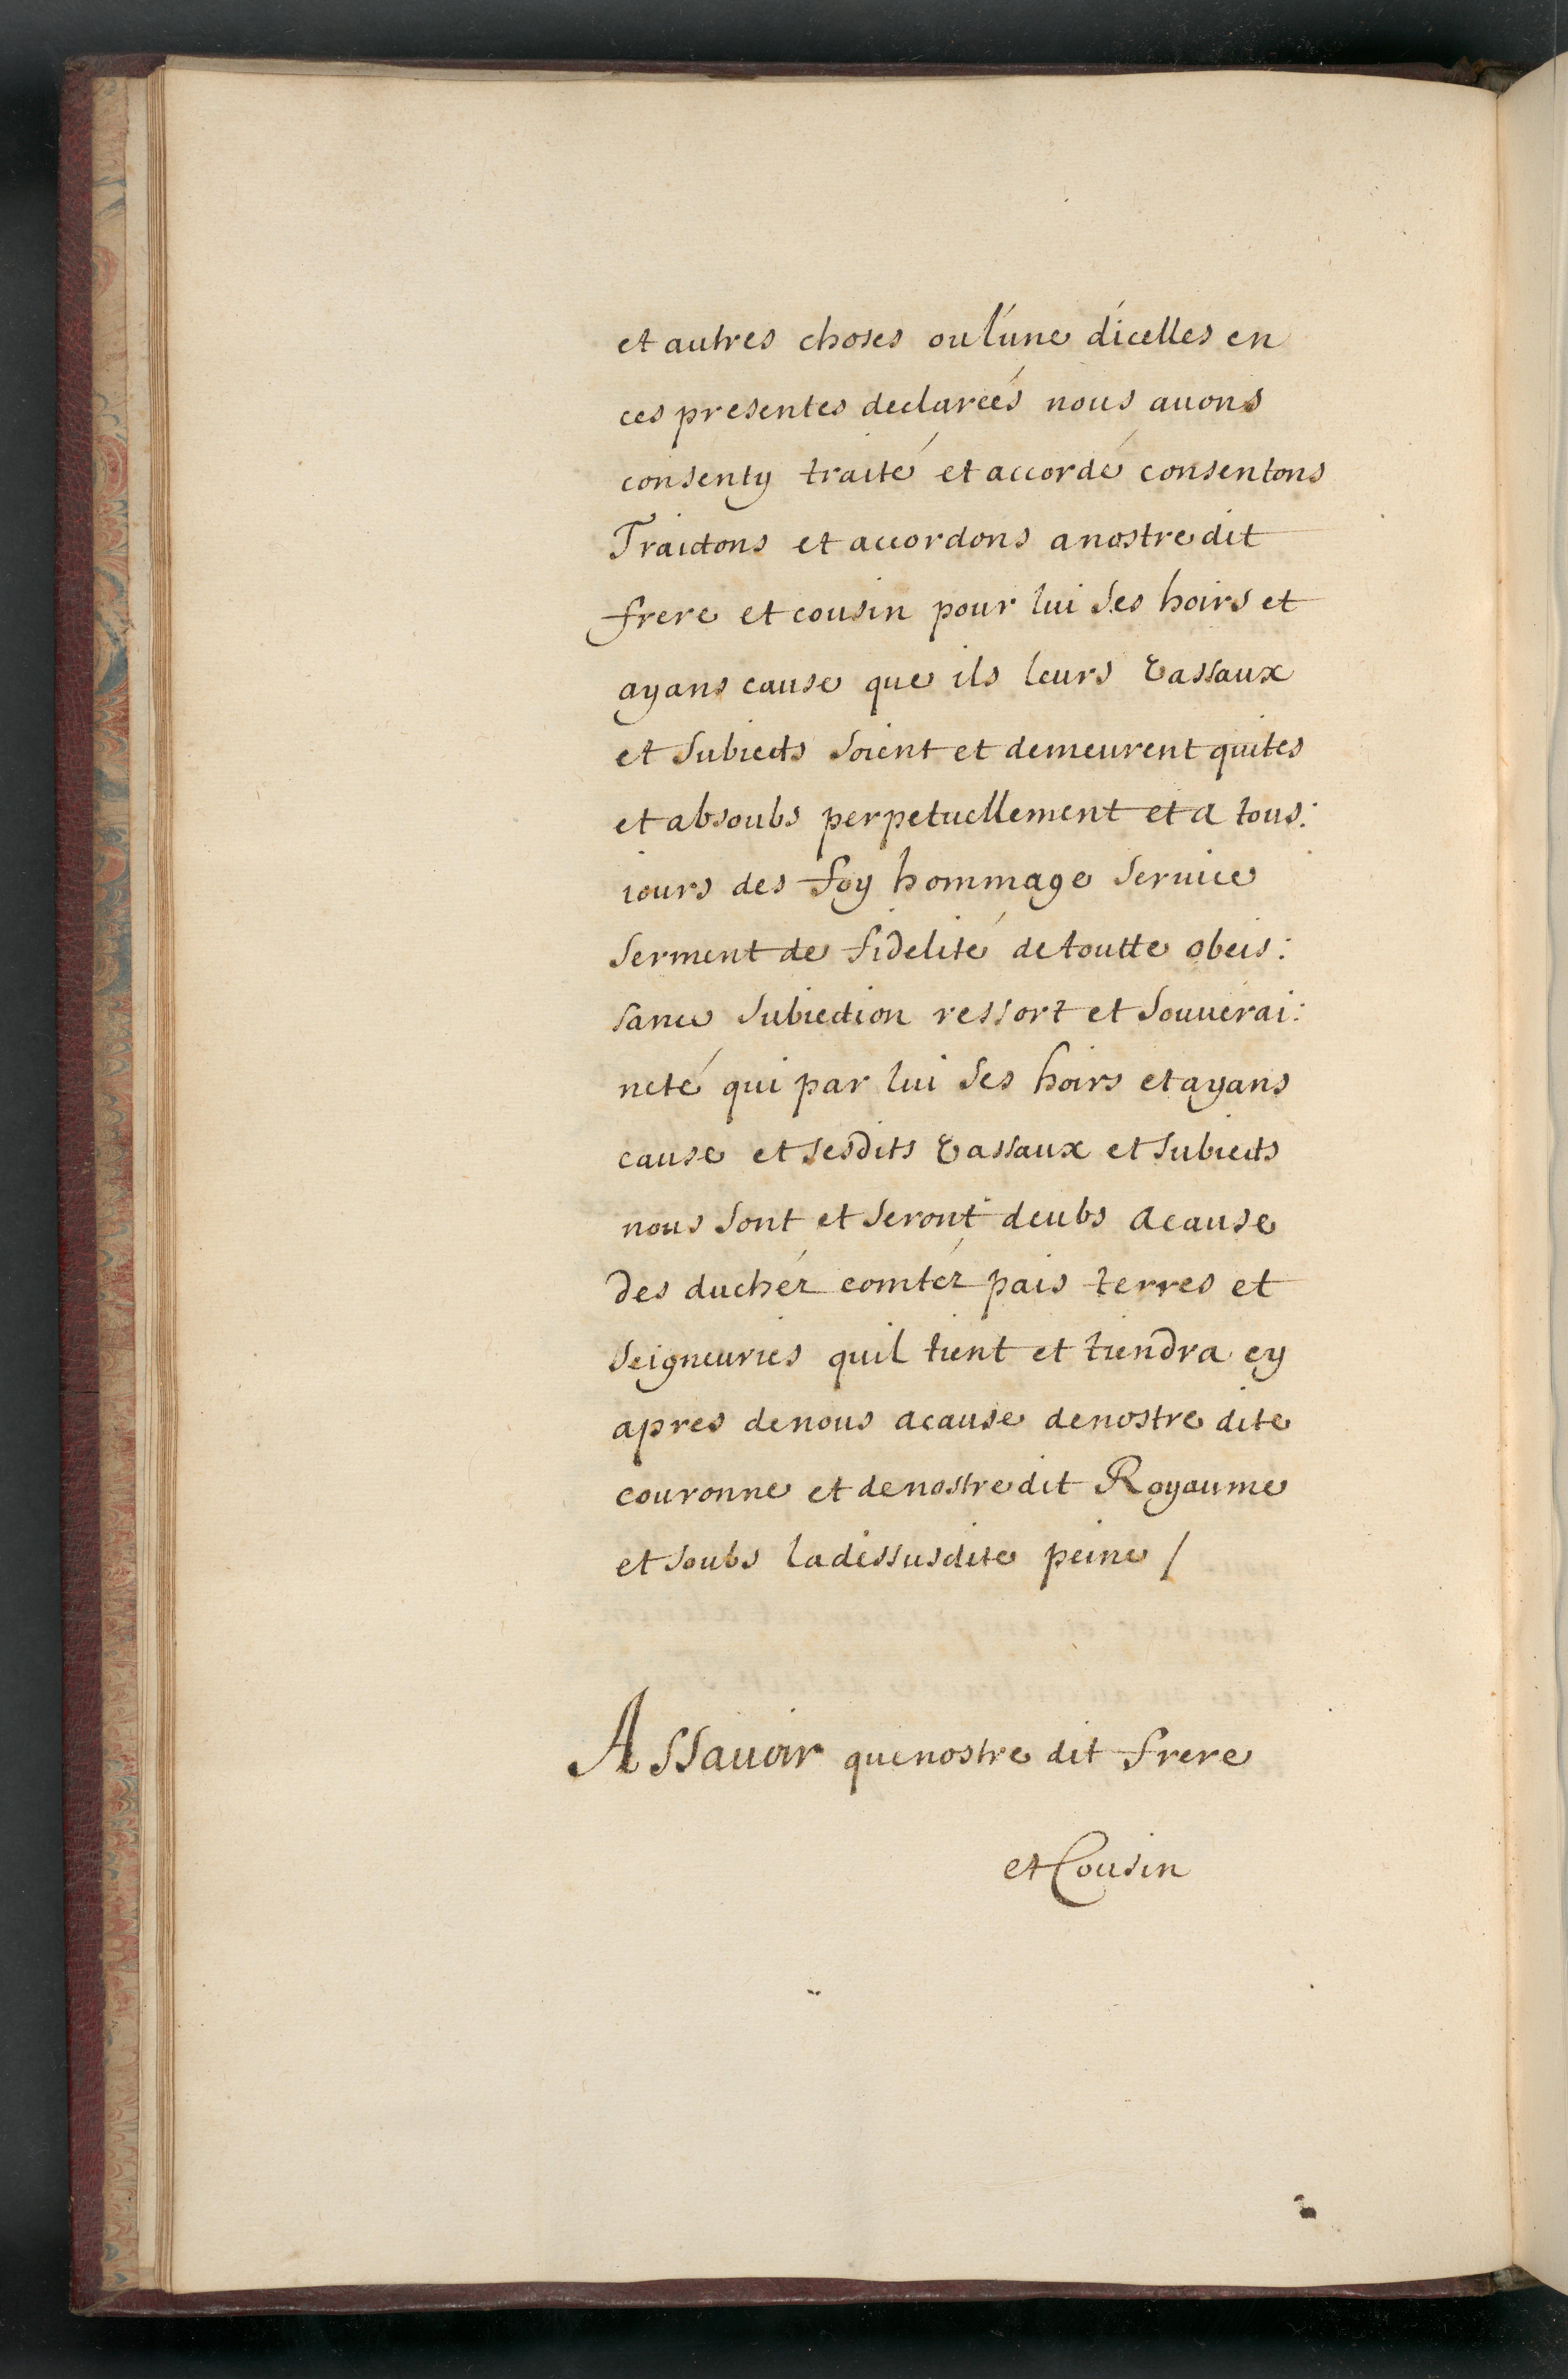 et autres choses ou l'une d'icelles en
ces presentes declareés nous auons
consenty traité et accordé consentons
Traictons et accordons a nostre dit
frere et cousin pour lui ses hoirs et
ayans cause que ils leurs vassaux
et subiects soient et demeurent quites
et absoubs perpetuellement et a tous:
iours des foy hommage seruice
serment de fidelité de toutte obeis:
sance subiection ressort et souuerai:
neté qui par lui ses hoirs et ayans
cause et sesdits vassaux et subiects
nous sont et seront deubs a cause
des duchéz comtéz pais terres et
seigneuries quil tient et tiendra cy
apres de nous a cause de nostre dite
couronne et de nostre dit Royaume
et soubs la dessusdite peine /
Assauoir que nostre dit frere
et Cousin